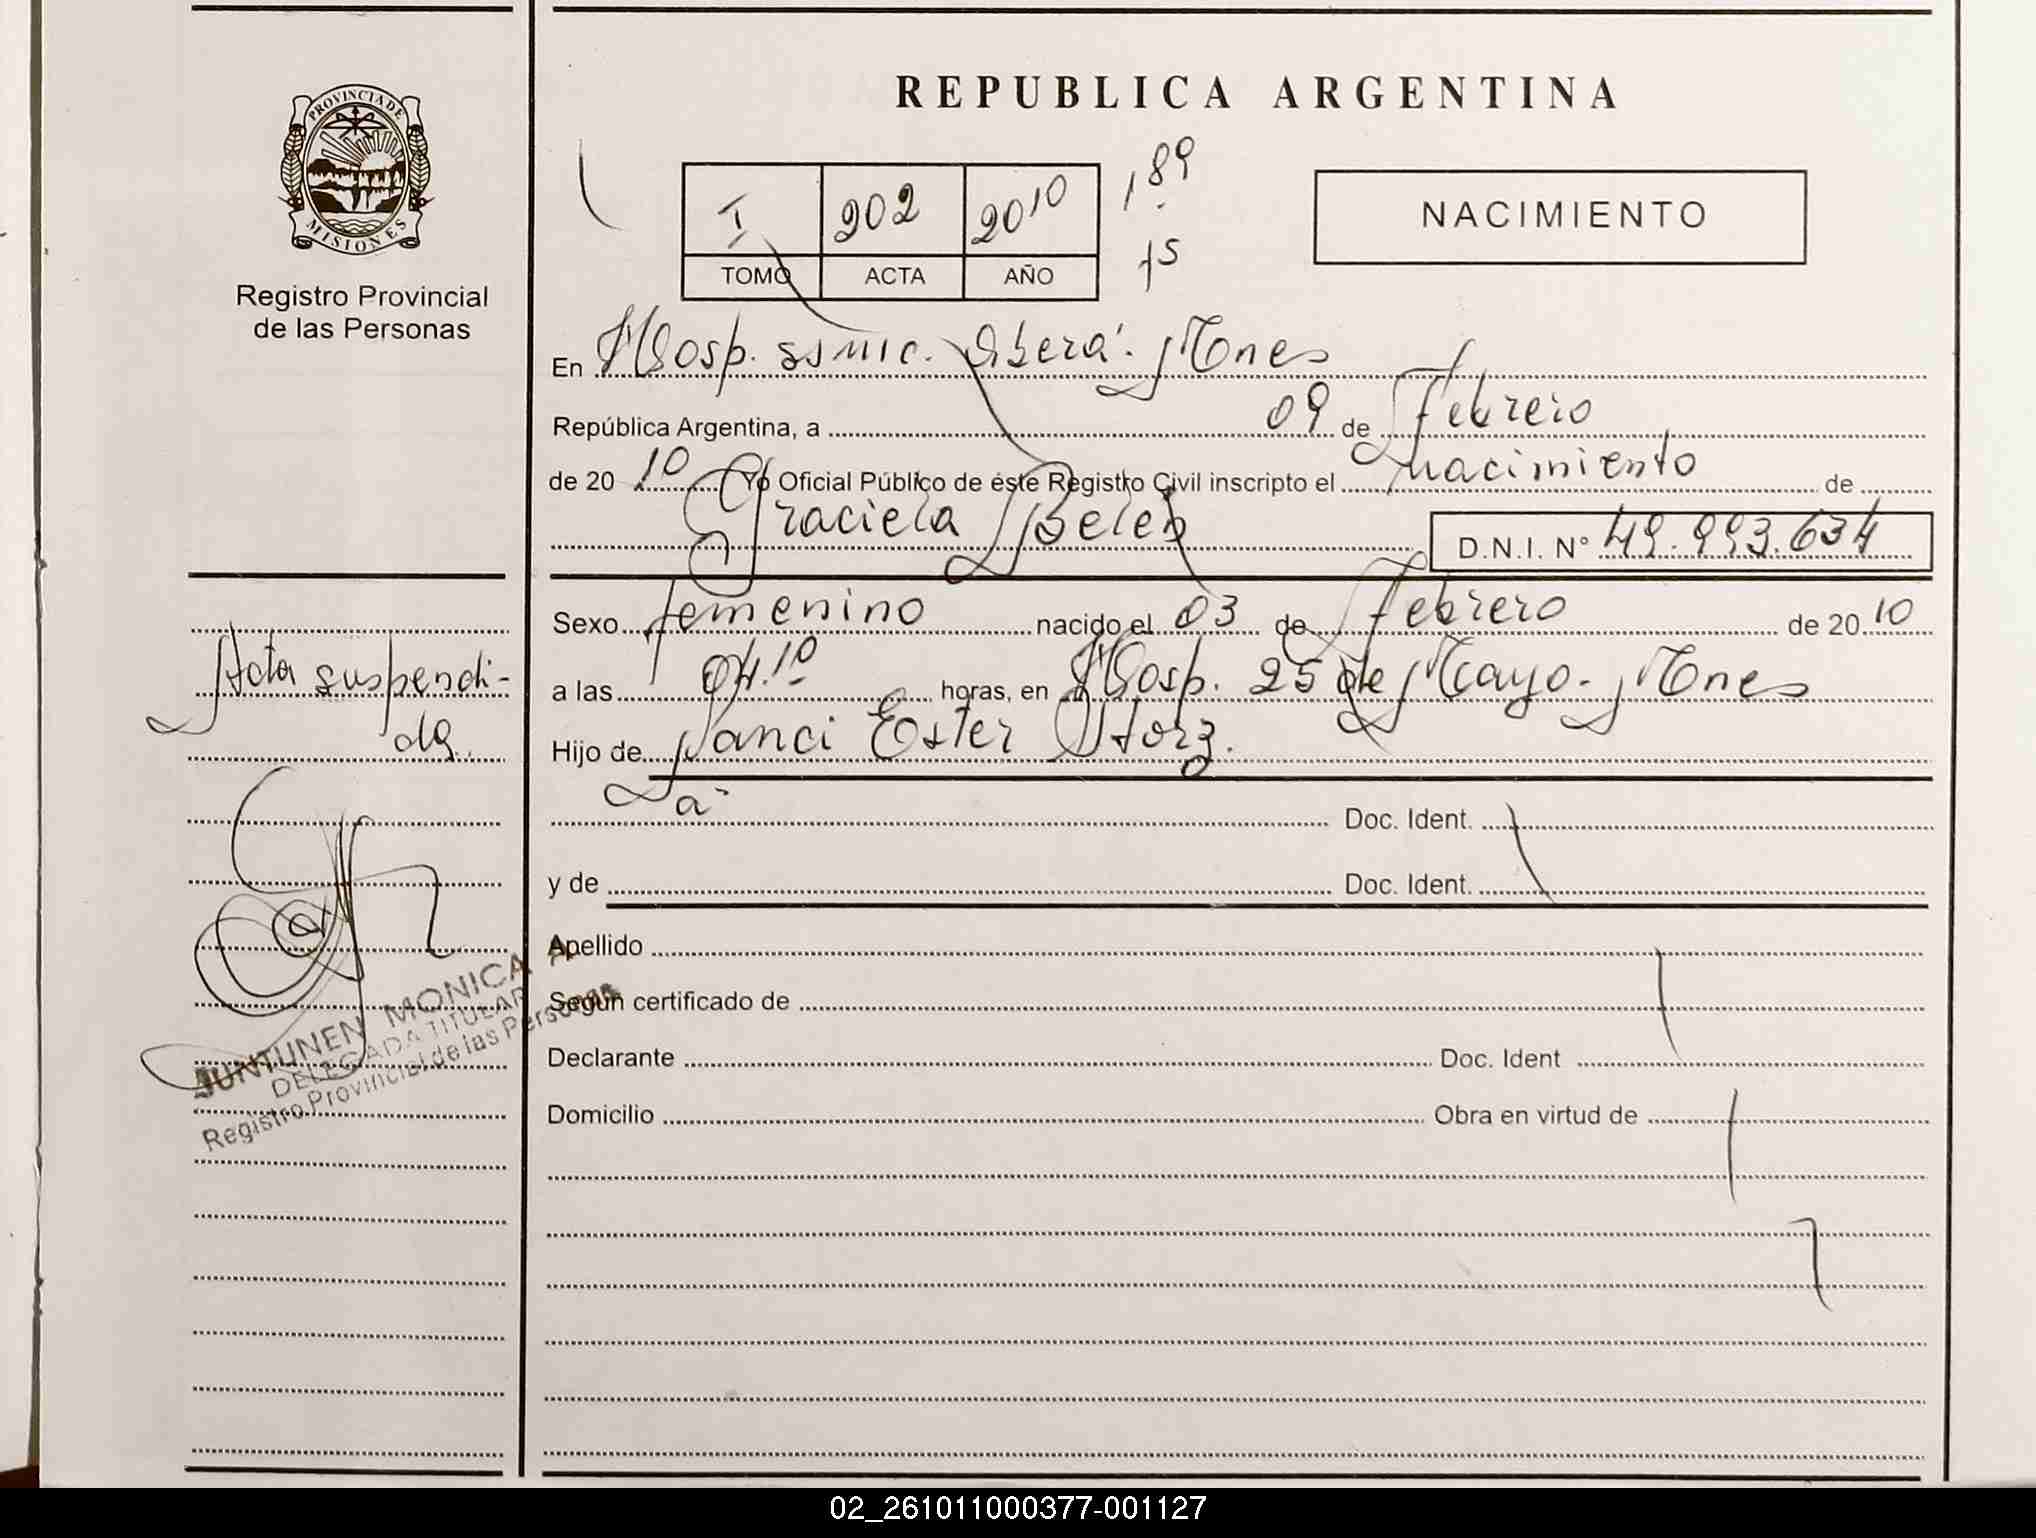 REPUBLICA ARGENTINA
PROVINCIA DE
MISIONES
Registro Provincial
de las Personas
I 202 2010
TOMO ACTA AÑO
189
15
NACIMIENTO
En Hosp. SSMIC. Oberá. Mnes
República Argentina, a 09 de Febrero
de 20 10 Yo Oficial Público de éste Registro Civil inscripto el nacimiento de
Graciela Belén
D.N.I. N° 49.993.634
Sexo femenino nacido el 03 de Febrero de 20 10
a las 04.10 horas, en Hosp. 25 de Mayo. Mnes
Hijo de Nanci Ester Storz.
Doc. Ident.
y de Doc. Ident.
Apellido
Según certificado de
Declarante Doc. Ident
Domicilio Obra en virtud de
Acta suspendi-
da.
JUNTUNEN MONICA A
DELEGADA TITULAR
Registro Provincial de las Personas
02_261011000377-001127